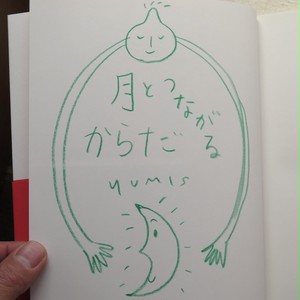 月とつながる
からだ
yumis